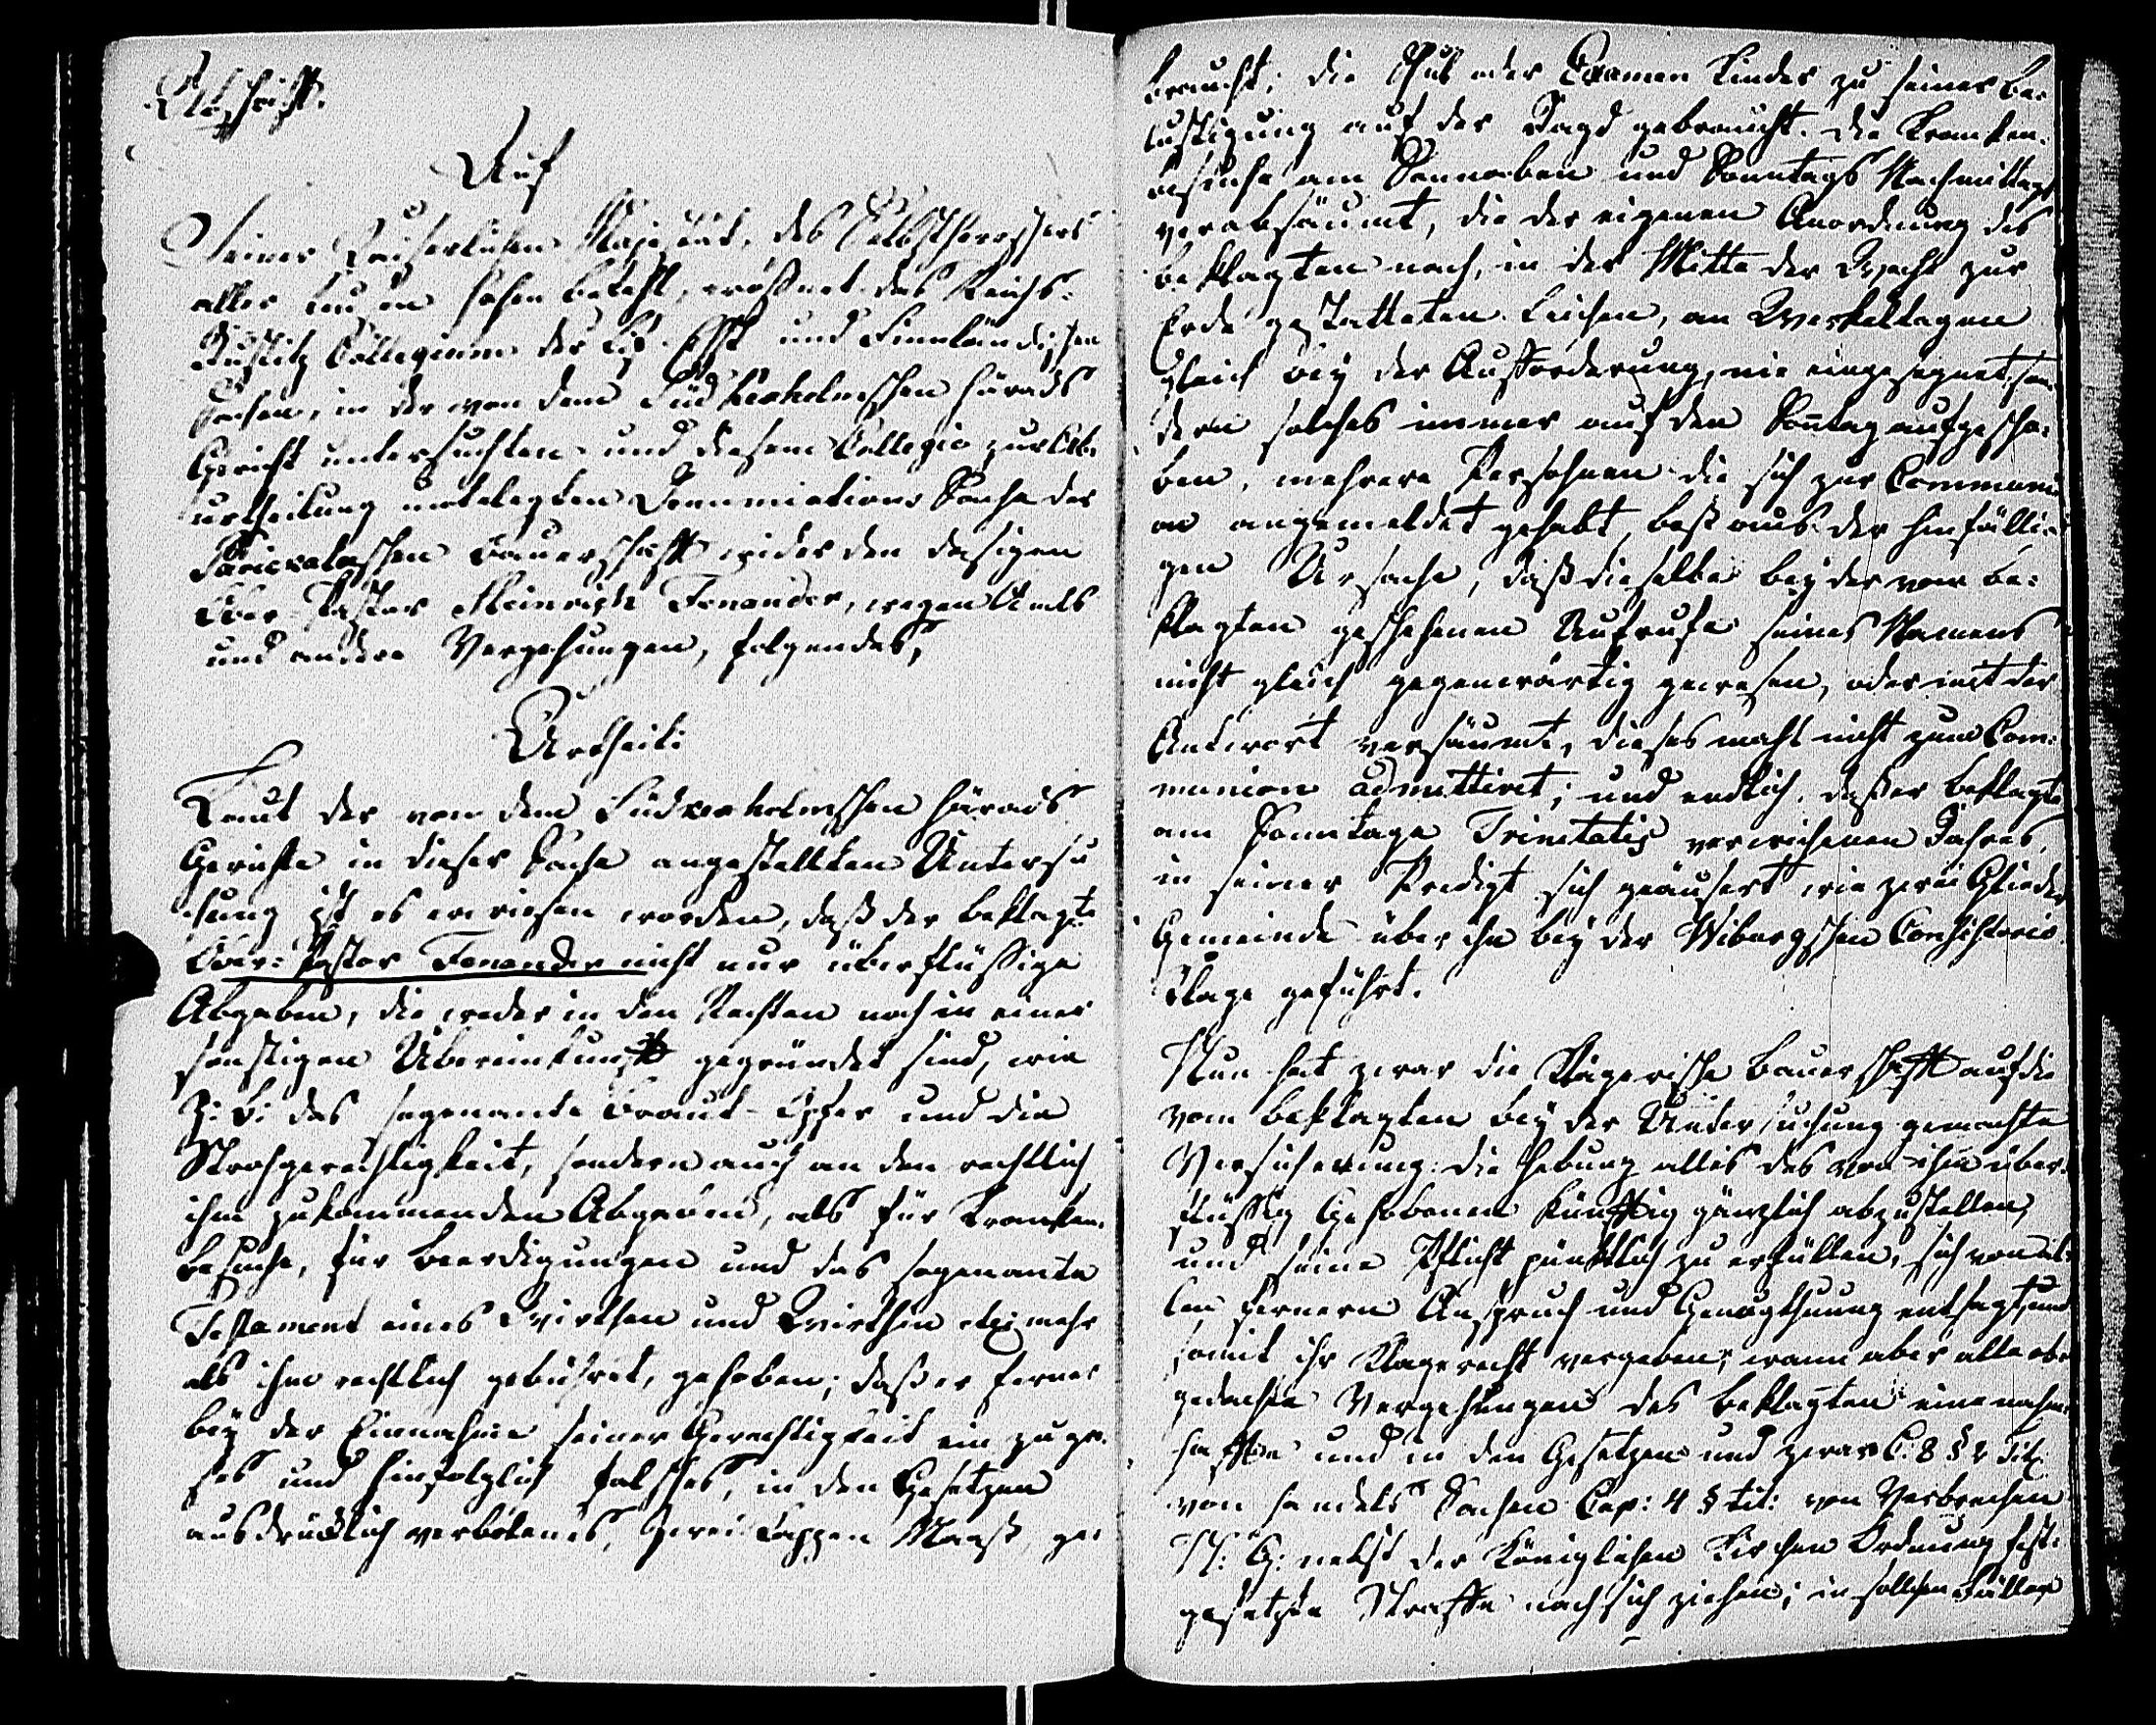 Abschrift.
Auf
Seiner Kaiserlichen Majestät, des Selbstherrschers
aller Reussen hohen Befehl, eröffnet das Reichs-
Justitz Collegium der Lief- Ehst und Finnländischen
Sachen, in der von dem Süd Kexholmschen Härads
Gericht untersuchten und diesem Collegio zur Ab-
urtheilung unterlegten Denunciations Sache der
Parickalaschen Bauerschafft wider den dasigen
Ober-Pastor Heinrich Fonander, wegen Amts
und andere Vergehungen, folgendes,
Urtheil:
Laut der von dem Südkexholmschen Härads
Gerichte in dieser Sache angestellten Untersu
chung ist es erwiesen worden, daß der Beklagte
Ober-Pastor Fonander nicht nur überflüssige
Abgaben, die weder in den Rechten noch in einer
sonstigen Übereinkunfft gegründet sind, wie
z: B: das sogenante Braut-Opfer und die
Strohgerechtigkeit, sondern auch an den rechtlich
ihm zukommenden Abgaben, als für Kranken-
besuche, für Beerdigungen und das sogenante
Testament eines Wirthen und Wirthin etc mehr
als ihm rechtlich gebühret, gehoben; daß er ferner
bey der Einnahme seiner Gerechtigkeit ein zu gr-
ßes und hinfolglich falsches, in den Gesetzen
ausdrücklich verbotenes, zwei Kappen Maaß, ge-
braucht; die Schul oder Examen Kinder zu seiner Be-
lustigung auf der Jagd gebraucht. die Kranken-
besuche am Sonnaben und Sonntags Nachmittags
verabsäumt, die der eigenen Anordnung des
Beklagten nach, in der Mitte der Woche zur
Erde gestatteten Leichen, an Werkeltagen
gleich bey der Aufforderung, nie eingesegnet, son-
dern solches immer auf den Sontag aufgescho-
ben, mehrere Persohnen die sich zur Communi
on angemeldet gehabt, bloß aus der hinfälli-
gen Ursache, daß dieselbe bey der vom Be-
klagten geschehenen Aufrufe seines Namens
nicht gleich gegenwärtig gewesen, oder mit der
Antwort versäumt, dieses mahl nicht zum Com-
munion admittiret; und endlich, daß er Beklagte
am Sonntage Trinitatis verwichenen Jahres,
in seiner Predigt sich geäußert wie zwei Glieder
Gemeinde über ihn bey der Wiburgschen Consistorio
Klage geführt.
Nun hat zwar die Klägerische Bauerschafft auf die
vom Beklagten bey der Untersuchung gemachte
Versicherung: die Hebung alles des von ihm über-
flüssig Gehobenen künfftig gänzlich abzustellen,
und seine Pflicht pünktlich zu erfüllen, sich von al-
len fernern Anspruch und Genugthuung entsagt, und
somit ihr Klagerecht vergeben; wann aber alle ob-
gedachte Vergehungen des Beklagten eine nahm-
haffte und in den Gesetzen und zwar C: 8 § 2 tit:
von Handels Sachen Cap: 4 § tit: von Verbrechen
N: G: nebst der Königlichen Kirchen Ordnung fest-
gesetzte Straffe nach sich ziehen; in solchen Fällen